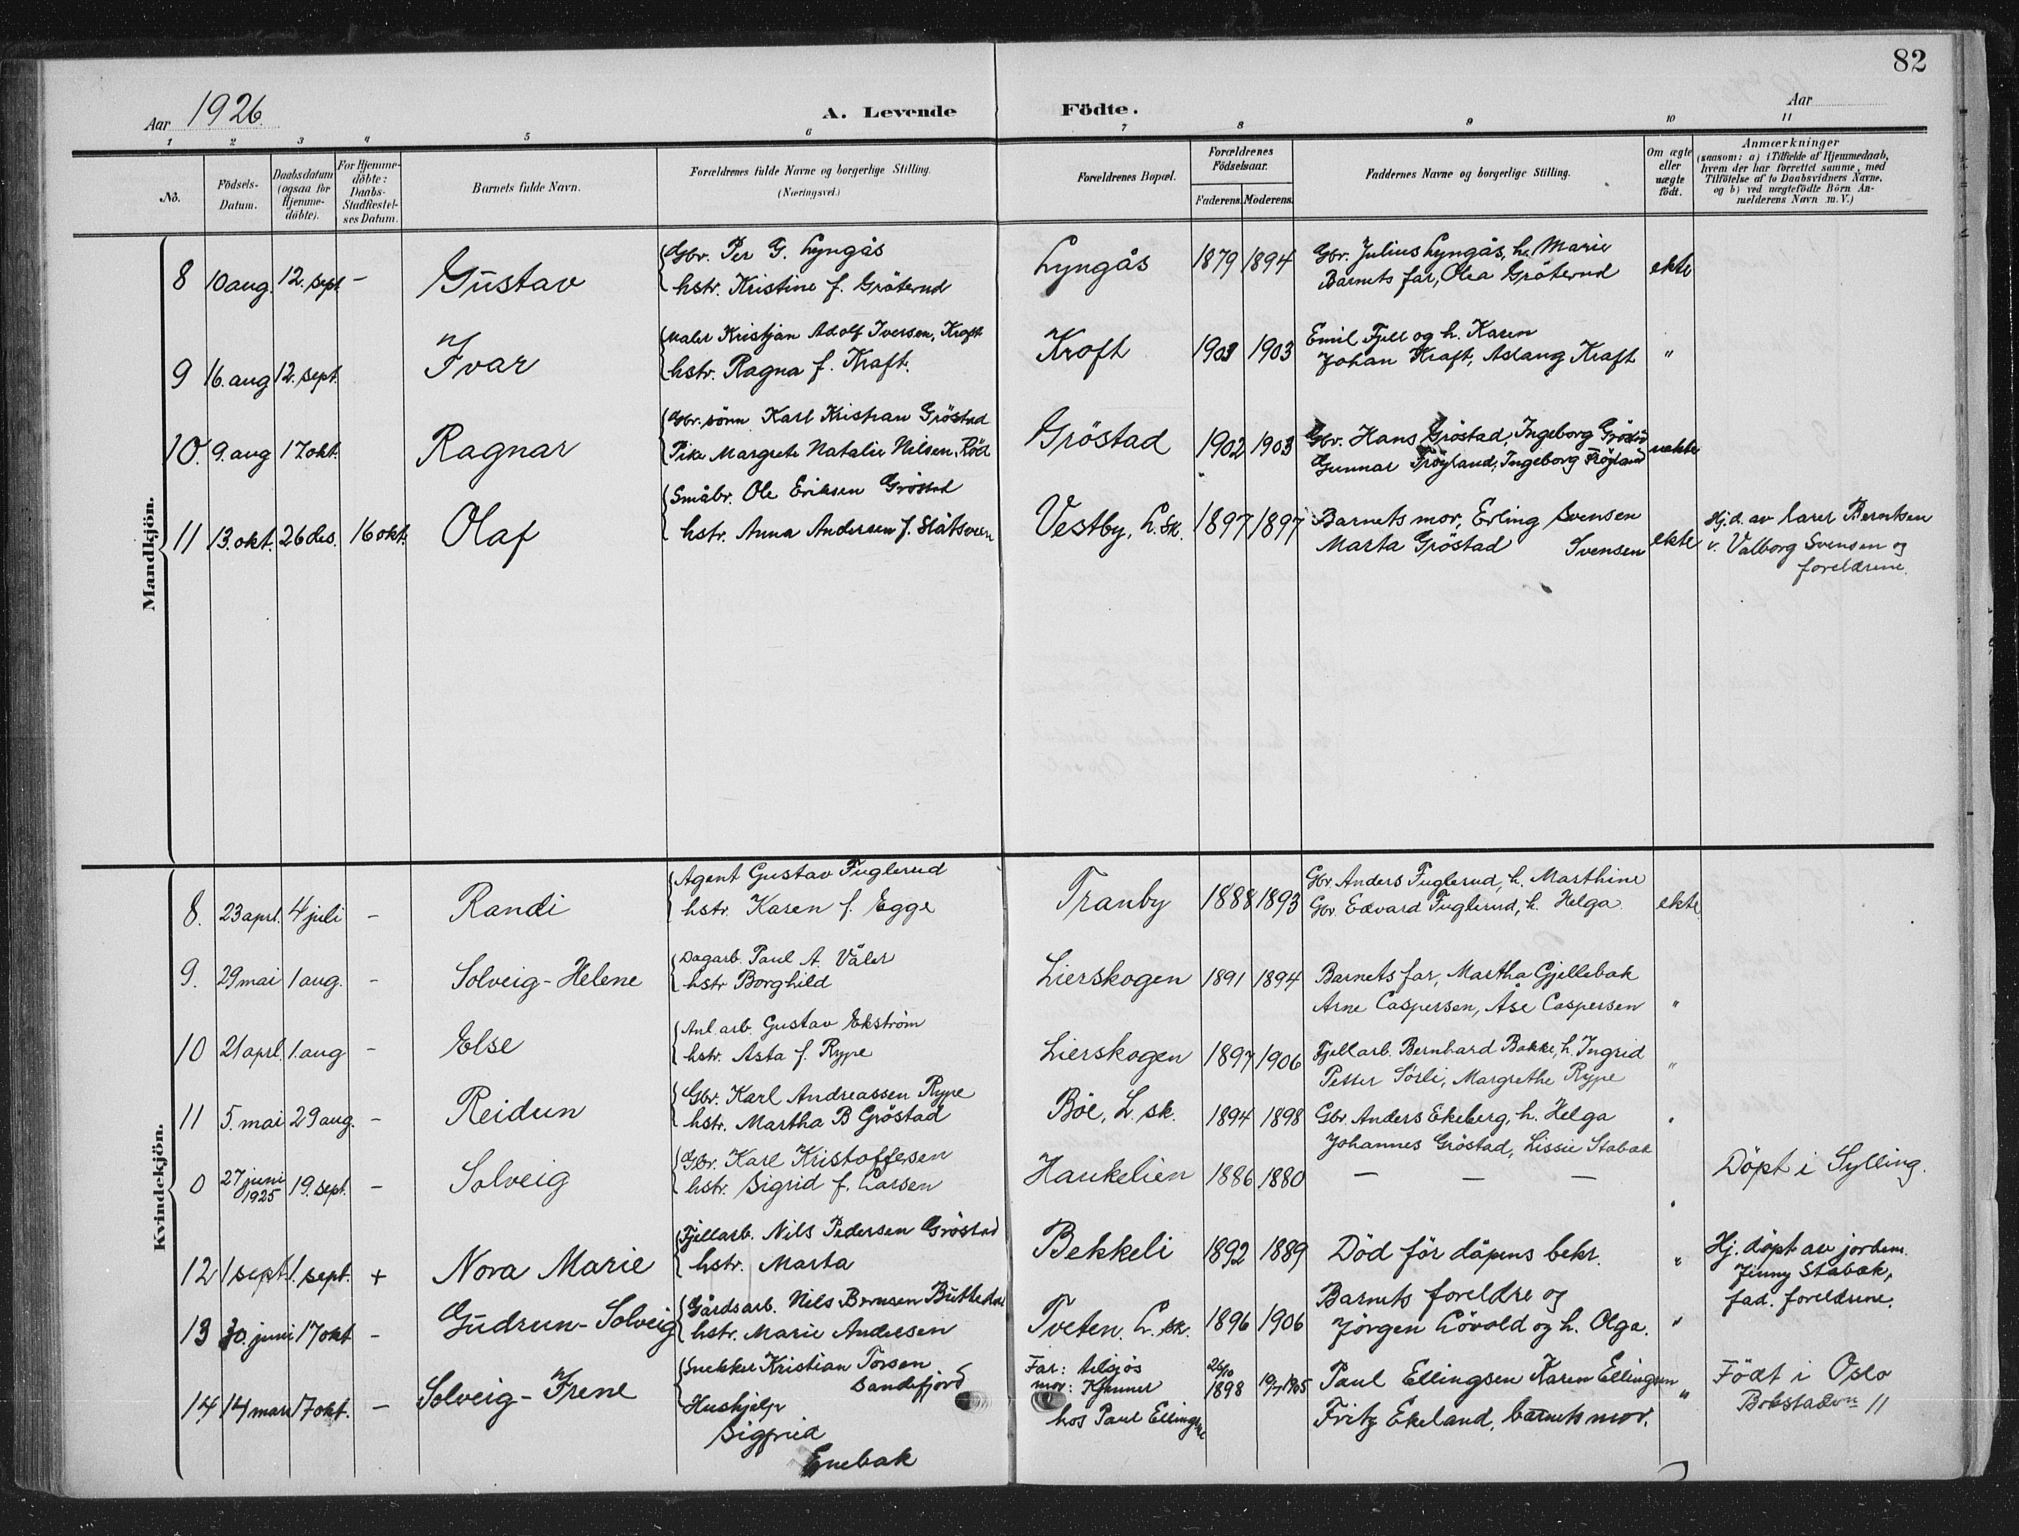 82
Aar 1926.
A. Levende Födte.
Aar
1 2 3 4 5 6 7 8 9 10 11
No.
Födsels-Datum.
Daabsdatum (ogsaa for Hjemme-döbte).
For Hjemme-döbte: Daabs-Stadfæstel-ses Datum.
Barnets fulde Navn.
Forældrenes fulde Navne og borgerlige Stilling.
(Næringsvei.)
Forældrenes Bopæl.
Forældrenes Födselsaar.
Faderens. Moderens.
Faddernes Navne og borgerlige Stilling.
Om ægte eller uægte födt.
Anmærkninger
(saasom: a) i Tilfælde af Hjemmedaab,
hvem der har forrettet samme, med
Tilföielse af to Daabsvidners Navne,
og b) ved uægtefödte Börn An-
melderens Navn m. V.)
Mandkjön.
8 10 aug. 12. sept – Gustav
Gbr. Per G. Lyngås
hstr. Kristine f. Gröterud
Lyngås 1879 1894
Gbr. Julius Lyngås, h. Marie
Barnets far, Olea Gröterud
ekte
9 16. aug 12. sept. Ivar
Maler Kristjan Adolf Iversen, Kroft
hstr. Ragna f. Kraft.
Kroft 1903 1903
Emil Fjell og h. Karen
Johan Kraft, Aslaug Kraft
"
10. 9. aug 17 okt. Ragnar
Gbr. sönn Karl Kristian Gröstad
Pike Margrete Natalie Nilsen, Röd
Gröstad 1902 1903
Gbr. Hans Gröstad, Ingeborg Gröstad
Gunnar Fröyland, Ingeborg Fröyland
uekte
11 13. okt. 26 des. 16 okt. Olaf
Småbr. Ole Eriksen Gröstad
hstr. Anna Andersen f. Slåtsveen
Vestby, L. sk. 1897 1897
Barnets mor, Erling Svensen
Marta Gröstad Svensen
ekte
Hj.d. av lærer Berntsen
v. Valborg Svensen og
foreldrene.
Kvindekjön.
8. 23 aprl. 4 juli – Randi
Agent Gustav Fuglerud
hstr. Karen f. Egge
Tranby 1888 1893
Gbr. Anders Fuglerud, h. Marthine
Gbr. Edvard Fuglerud, h. Helga
ekte
9. 29 mai 1 aug. – Solveig-Helene
Dagarb. Paul A. Våler
hstr Borghild
Lierskogen 1891 1894
Barnets far, Martha Gjellebæk
Arne Caspersen, Åse Caspersen
"
10 21 aprl. 1. aug – Else
Anl.arb. Gustav Ekström
hstr. Asta f. Rype
Lierskogen 1897 1906
Fjellarb. Bernhard Bakke, h. Ingrid
Petter Sörli, Margrethe Rype
"
11 5. mai 29 aug. – Reidun
Gbr. Karl Andreassen Rype
hstr. Martha B Gröstad
Böe, L. sk. 1894 1898
Gbr. Anders Ekeberg, h. Helga
Johannes Gröstad, Lissie Stabæk
"
0 27 juni 1925 19. sept. – Solveig
Gbr. Karl Kristoffersen
hstr. Sigrid f. Larsen
Haukelien 1886 1880
– – –
"
Döpt i Sylling.
12 1 sept. 1. sept. + Nora Marie
Fjellarb. Nils Pedersen Gröstad
hstr. Marta
Bekkeli 1892 1889
Död för dåpens bekr.
"
Hj. döpt av jordem.
Jenny Stabæk,
fad. foreldrene.
13 30. juni 17 okt – Gudrun-Solveig
Gårdsarb. Nils Berntsen
hstr. Marie Andersen
Tveten. L. sk. 1896 1906
Barnets foreldre og
Jörgen Lövold og h. Olga.
"
14 14 mars 17 okt. – Solveig-Irene
Snekker Kristian Torsen
Sandefjord
Hushjelp
Sigfrid
Enebak
Far:
mor:
hos Paul Ellingsen
26/10 1898 19/7 1905
Paul Ellingsen Karen Ellingsen
Fritz Ekeland, barnets mor.
"
Födt i Oslo
Bokstadvn 11